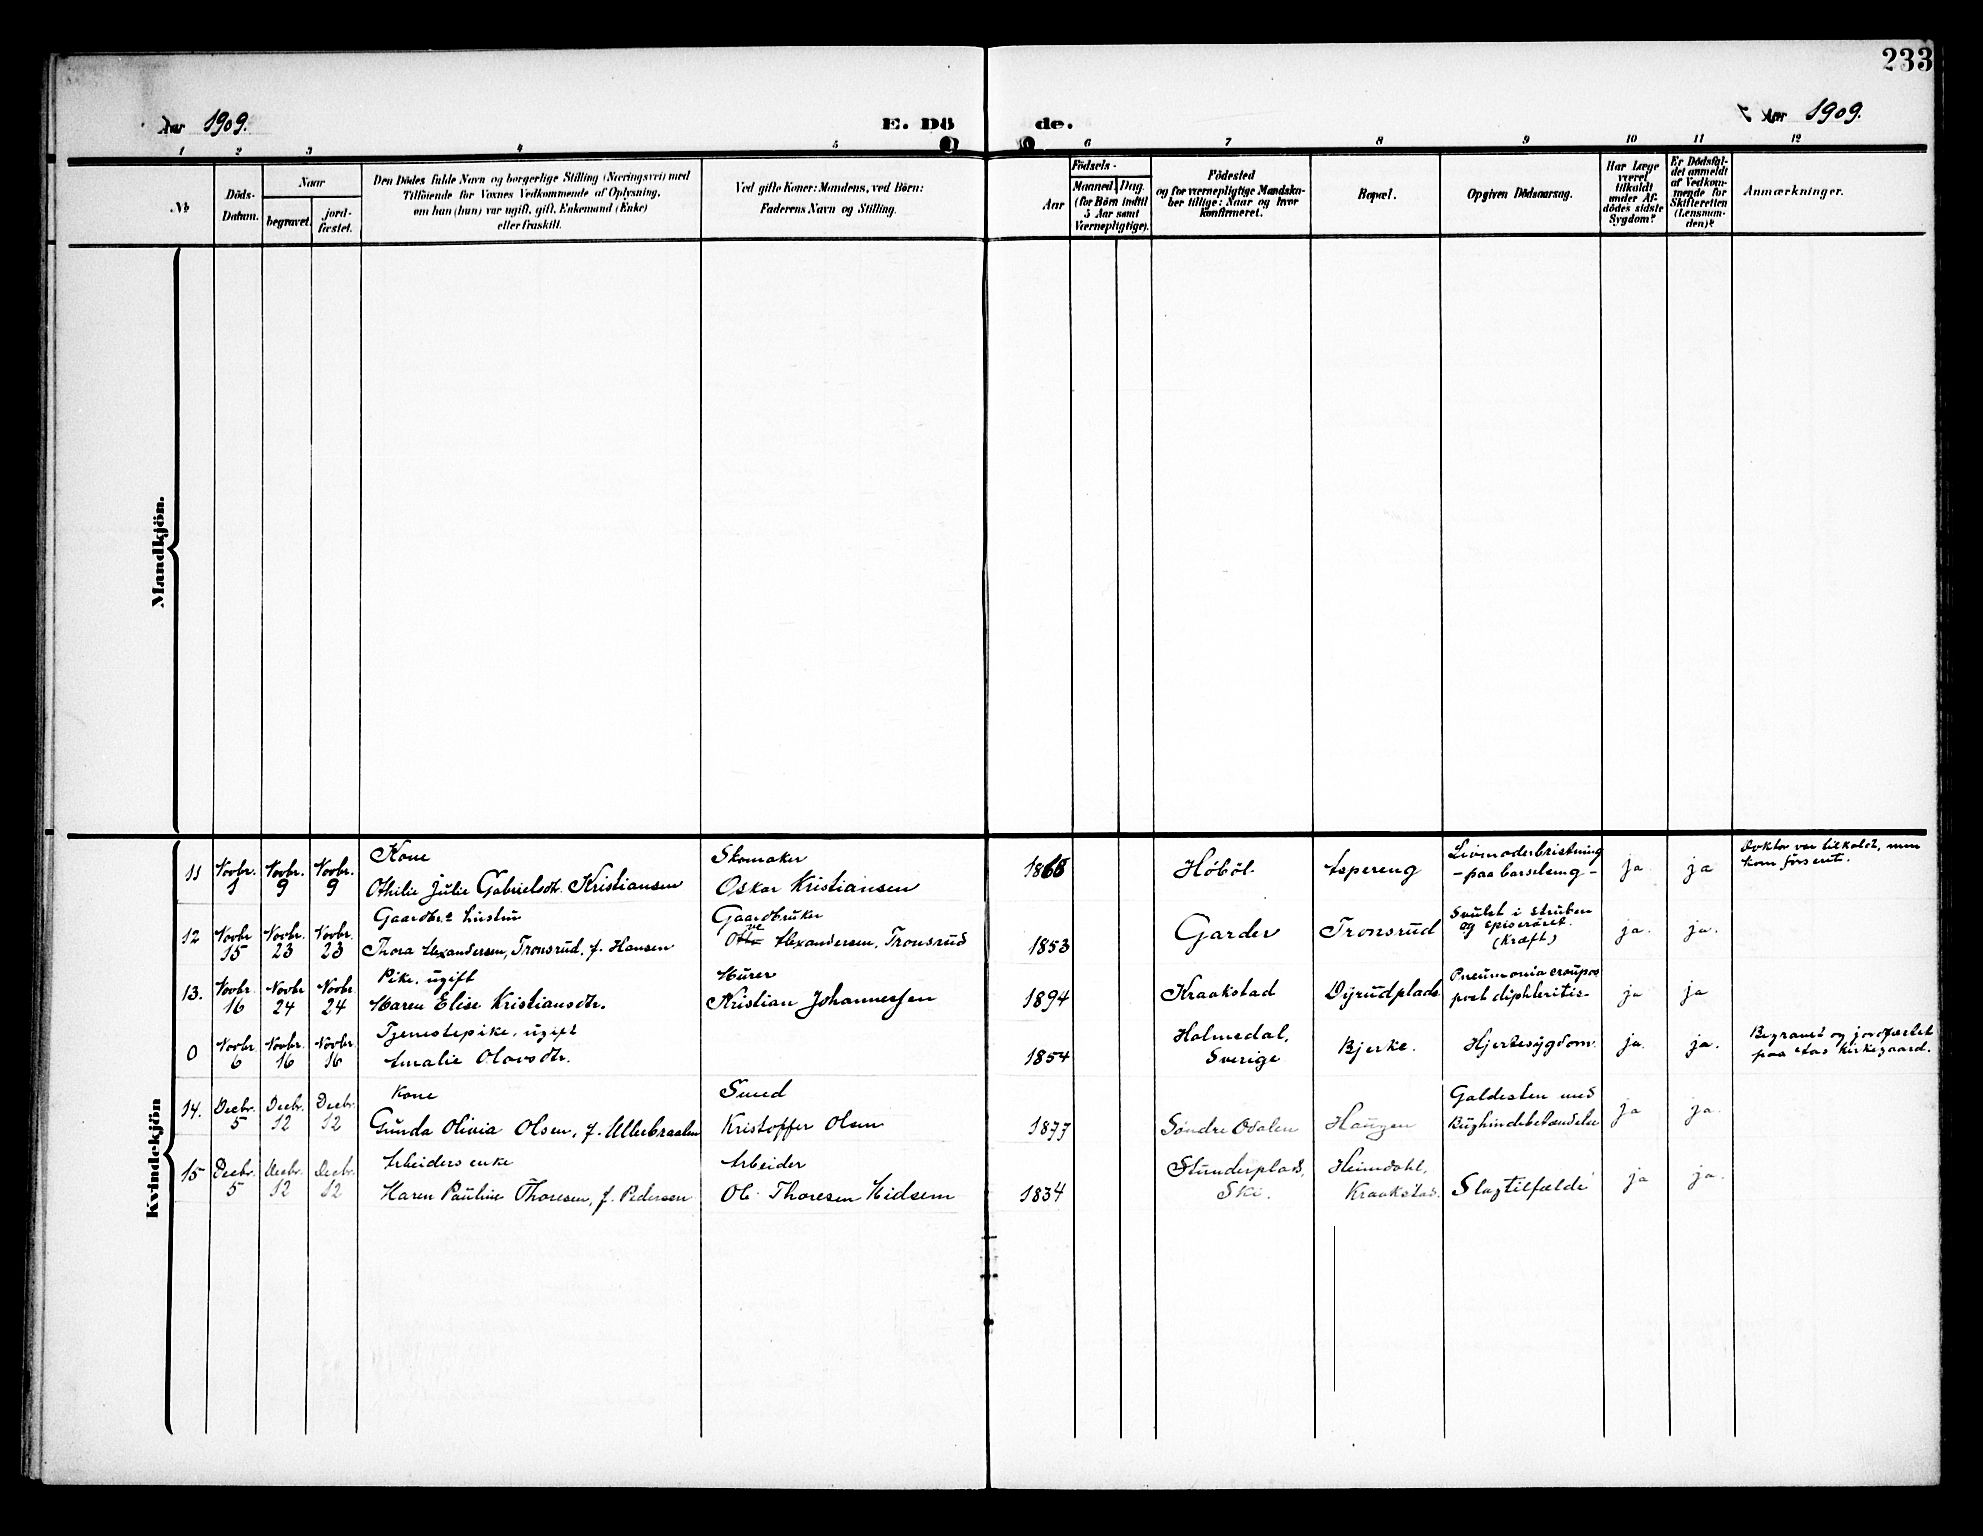 233
Aar 1909.
E. Dö
de.
Aar 1909.
1 2 3 4 5 6 7 8 9 10 11 12
№
Döds-
Datum.
Naar
begravet.
jord-
fæstet.
Den Dödes fulde Navn og borgerlige Stilling (Næringsvei) med
Tilföiende for Voxnes Vedkommende af Oplysning,
om han (hun) var ugift, gift, Enkemand (Enke)
eller fraskilt.
Ved gifte Koner: Mandens, ved Börn:
Faderens Navn og Stilling.
Födsels-
Aar
Maaned Dag.
(for Börn indtil
5 Aar samt
Værnepligtige).
Födested
og for værnepligtige Mandska-
ber tillige: Naar og hvor
konfirmeret.
Bopæl.
Opgiven Dödsaarsag.
Har Læge
været
tilkaldt
under Af-
dödes sidste
Sygdom?
Er Dödsfal-
det anmeldt
af Vedkom-
mende for
Skifteretten
(Lensman-
den)?
Anmærkninger.
Mandkjön.
Kvindekjön
11 Novbr. 1 Novbr. 9 Novbr. 9
Kone
Othilie Julie Gabrielsdtr. Kristiansen
Skomaker
Oskar Kristiansen
Höböl Aspereng
Livmoderbristning
- paa barselseng -
ja. ja
Doktor var tilkaldt, men
kom forsent.
12 Novbr 15 Novbr. 23 Novbr. 23
Gaardbr.s hustru
Thora Alexandersen, Tronsrud, f. Hansen
Gaardbruker
Alexandersen, Tronsrud
1853
Garder Tronsrud
Svulst i struben
og spiserøret.
(Kræft)
ja. ja.
13. Novbr. 16 Novbr. 24 Novbr. 24
Pike, ugift
Maren Elise Kristiansdtr.
Murer
Kristian Johannessen
1894
Kraakstad Dyrudplads
Pneumonia croupos
post diphteritis-
ja ja
0 Novbr. 6 Novbr. 16 Novbr. 16
Tjenestepike, ugift
Amalie Olavsdtr.
1854
Holmedal,
Sverige
Bjerke.
Hjertesygdom.
ja. ja.
Begravet og jordfæstet
paa Aas kirkegaard.
14. Decbr. 5 Decbr. 12 Decbr. 12
Kone
Gunda Olivia Olsen, f. Ullerbraaten
Smed
Kristoffer Olsen
1877
Søndre Odalen Haugen
Galdesten med
Bughindebetændelse
ja ja.
15 Decbr. 5 Decbr. 12 Decbr. 12
Arbeiders enke
Maren Pauline Thoresen, f. Pedersen
Arbeider
Ole Thoresen Midsem
1834
Stunderplads,
Ski.
Heimdahl,
Kraakstad.
Slagtilfælde
ja ja.